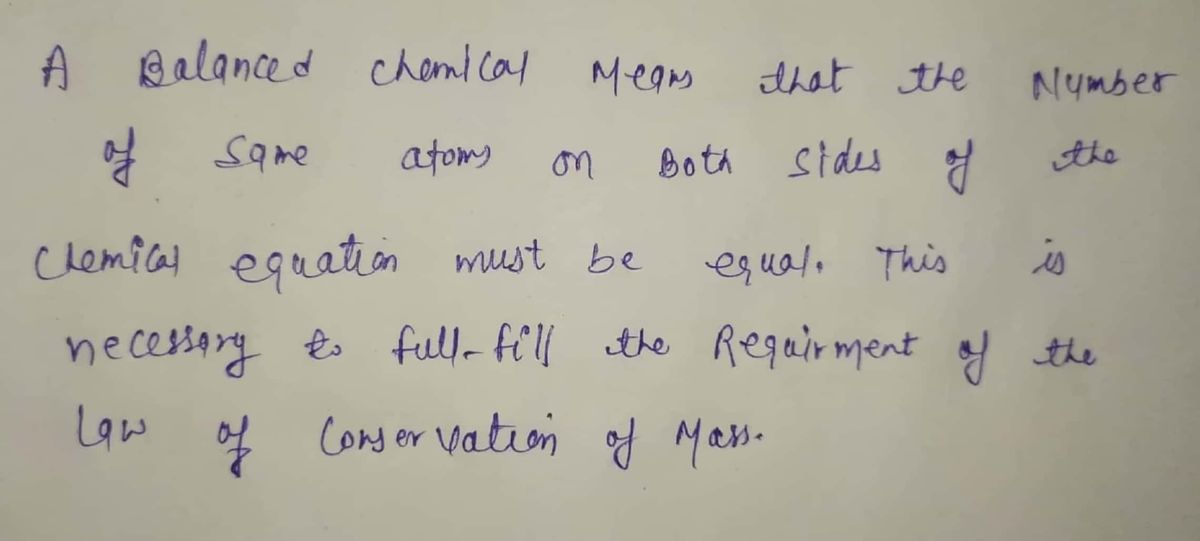 A Balanced chemical Means that the Number
of same atoms on Both sides of the
Chemical equation must be equal. This is
necessary to full-fill the Requirment of the
Law of Conservation of Mass.